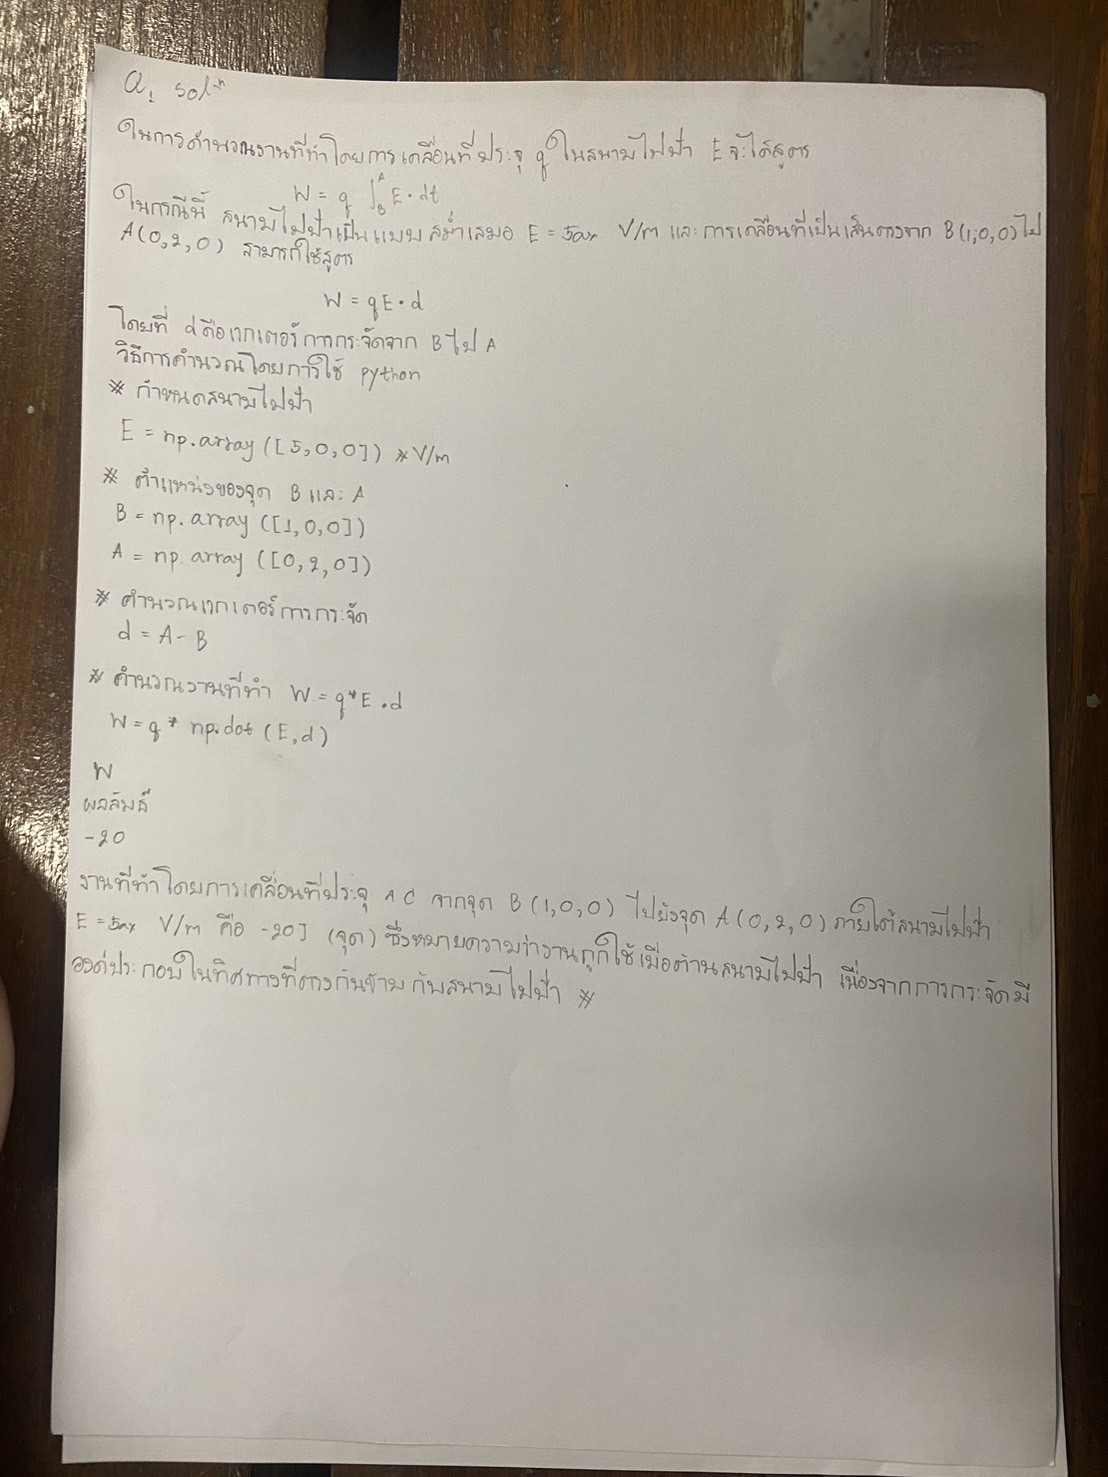 Q1 solⁿ
ในการคำนวณงานที่ทำโดยการเคลื่อนที่ประจุ q ในสนามไฟฟ้า E จะได้สูตร
W = q ∫_B^A E · dt
ในกรณีนี้ สนามไฟฟ้าเป็นแบบสม่ำเสมอ E = 5ax V/m และการเคลื่อนที่เป็นเส้นตรงจาก B(1,0,0) ไป
A(0,2,0) สามารถใช้สูตร
W = qE · d
โดยที่ d คือเวกเตอร์การกระจัดจาก B ไป A
วิธีการคำนวณโดยการใช้ python
* กำหนดสนามไฟฟ้า
E = np.array([5,0,0]) * V/m
* ตำแหน่งของจุด B และ A
B = np.array([1,0,0])
A = np.array([0,2,0])
* คำนวณเวกเตอร์การกระจัด
d = A - B
* คำนวณงานที่ทำ W = q*E.d
W = q * np.dot(E,d)
W
ผลลัพธ์
-20
งานที่ทำโดยการเคลื่อนที่ประจุ 4C จากจุด B(1,0,0) ไปยังจุด A(0,2,0) ภายใต้สนามไฟฟ้า
E = 5ax V/m คือ -20J (จูด) ซึ่งหมายความว่างานถูกใช้เพื่อต้านสนามไฟฟ้า เนื่องจากการกระจัดมี
องค์ประกอบในทิศทางที่ตรงกันข้ามกับสนามไฟฟ้า *